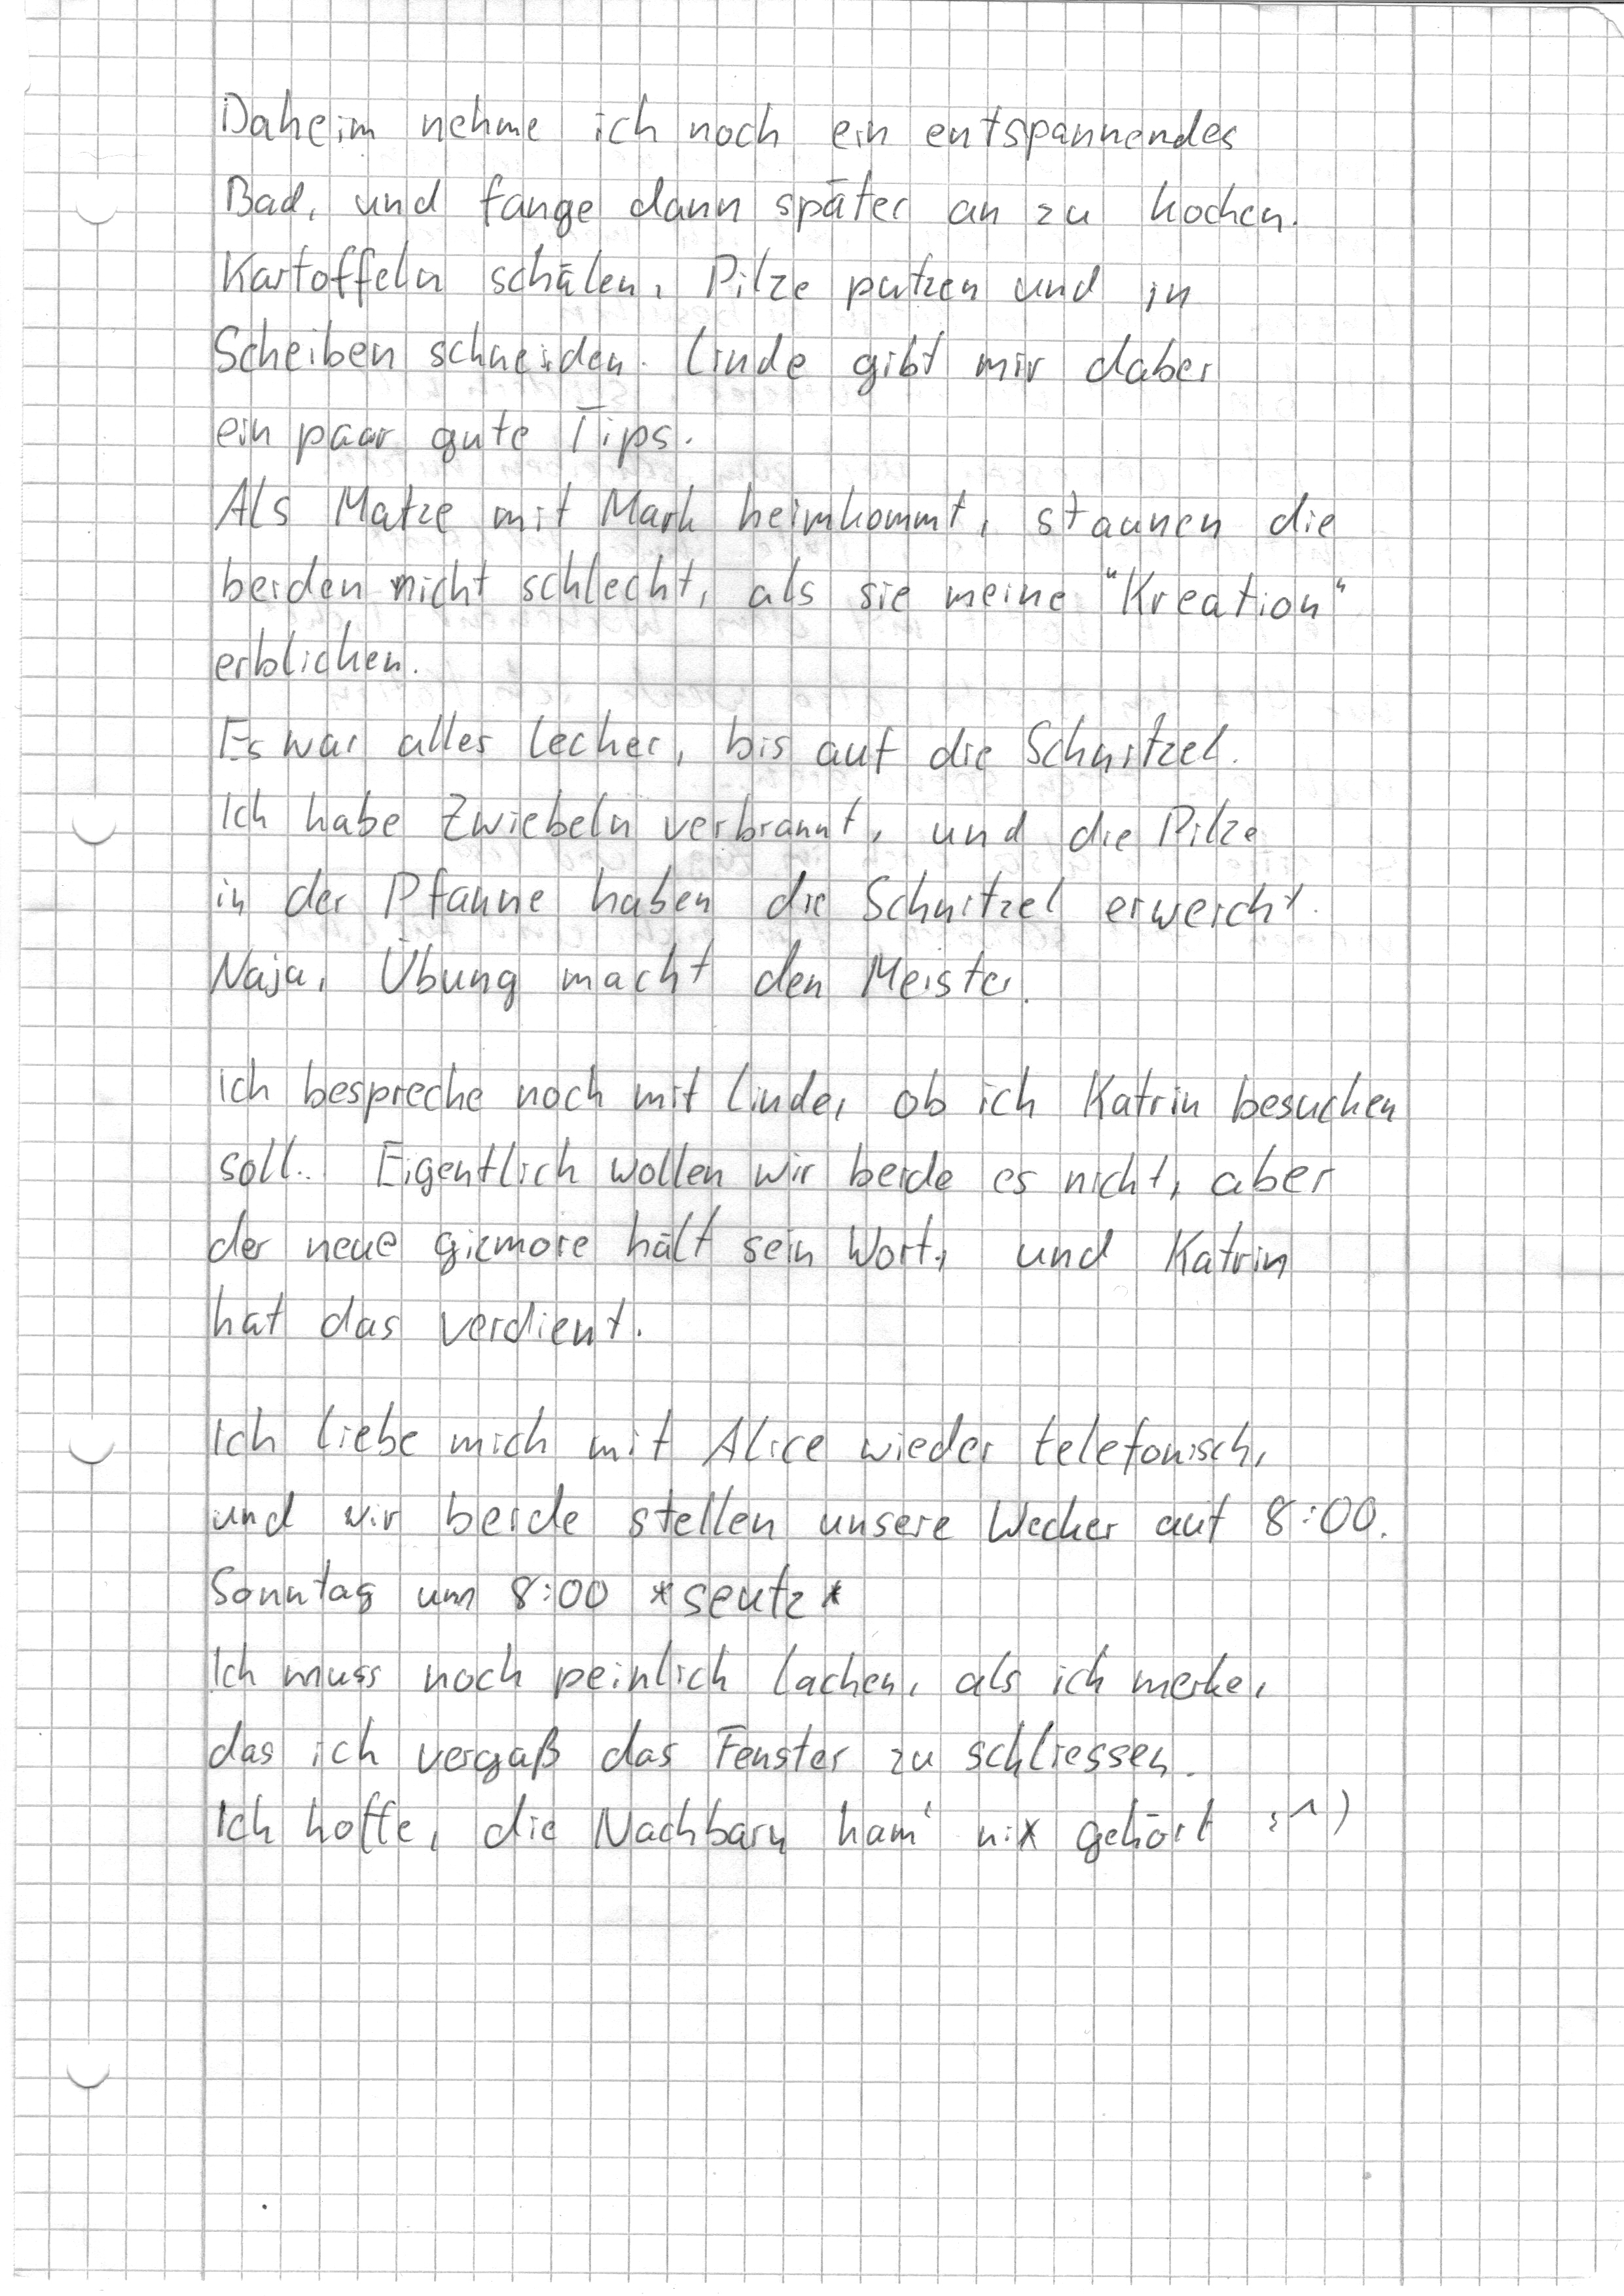 Daheim nehme ich noch ein entspannendes
Bad, und fange dann später an zu kochen.
Kartoffeln schälen, Pilze putzen und in
Scheiben schneiden. Linde gibt mir dabei
ein paar gute Tips.
Als Matze mit Mark heimkommt, staunen die
beiden nicht schlecht, als sie meine "Kreation"
erblicken.
Es war alles lecker, bis auf die Schnitzel.
Ich habe Zwiebeln verbrannt, und die Pilze
in der Pfanne haben die Schnitzel erweicht.
Naja, Übung macht den Meister.
Ich bespreche noch mit Linde, ob ich Katrin besuchen
soll. Eigentlich wollen wir beide es nicht, aber
der neue gizmore hält sein Wort, und Katrin
hat das verdient.
Ich liebe mich mit Alice wieder telefonisch,
und wir beide stellen unsere Wecker auf 8:00.
Sonntag um 8:00 *seutz*
Ich muss noch peinlich lachen, als ich merke,
das ich vergaß das Fenster zu schliessen.
Ich hoffe, die Nachbarn ham' nix gehört ;^)